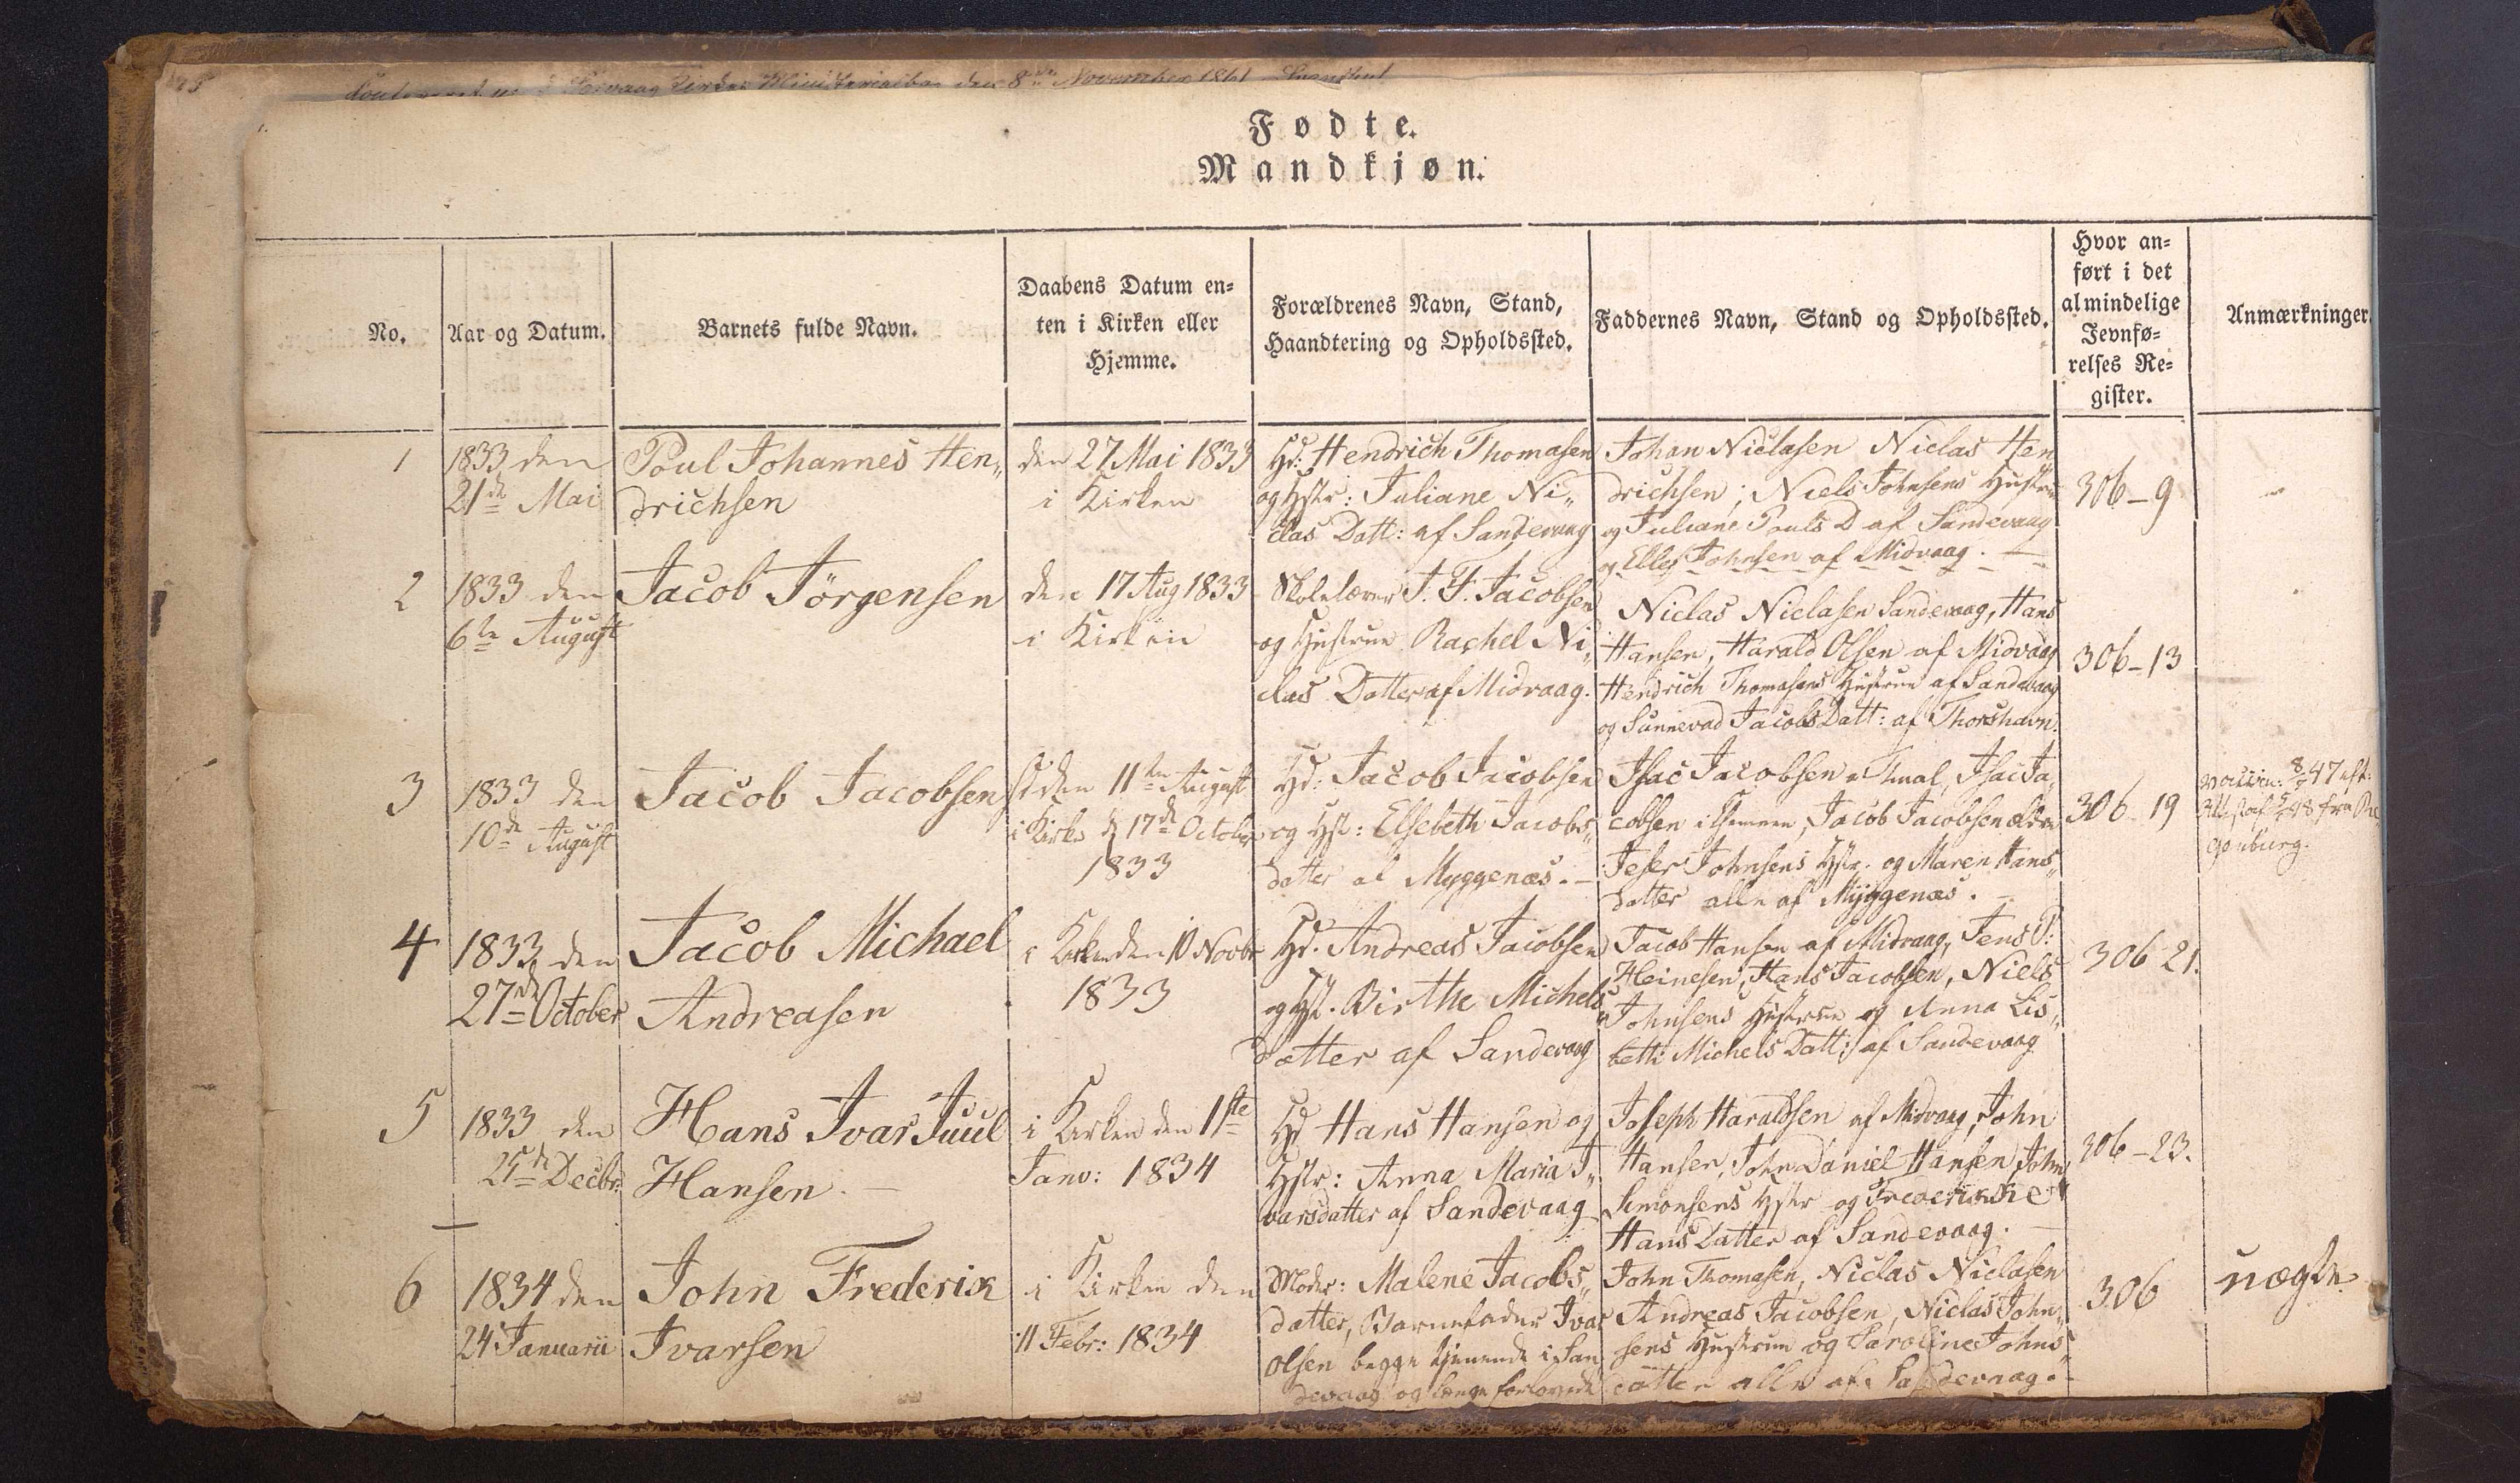 den 8de November 1861
Fødte.
Mandkjøn.
No.
Aar og Datum.
Barnets fulde Navn.
Daabens Datum en-
ten i Kirken eller
Hjemme.
Forældrenes Navn, Stand,
Haandtering og Opholdssted.
Faddernes Navn, Stand og Opholdssted.
Hvor an-
ført i det
almindelige
Jevnfø-
relses Re-
gister.
Anmærkninger.
1
1833 den
21de Mai
Poul Johannes Hen„
drichsen
den 27 Mai 1833
i Kirken
Hd: Hendrich Thomasen
og Hstr: Juliane Ni„
clas Datt: af Sandevaag
Johan Niclasen Niclas Hen
drichsen; Niels Johnsens Hustru
og Juliane Pouls D af Sandevaag
og Johnsen af Midvaag. —
306-9
2
1833 den
6te August
Jacob Jörgensen
den 17 Aug 1833
i Kirken
Skolelærer J. F. Jacobsen
og Hustrue Rachel Ni„
clas Datter af Midvaag.
Niclas Niclasen Sandevaag, Hans
Hansen, Harald Olsen af Midvaag
Hendrich Thomasens Hustrue af Sandevaag
og Sunnevad Jacobs Datt: af Thorshavn.
306-13
3
1833 den
10de August
Jacob Jacobsen
den 11te August
i Kirke d 17de October
1833
Hd: Jacob Jacobsen
og Hst: Elsebeth Jacobs„
datter af Myggenæs. —
Isac Jacobsen Isac Ja„
cobsen Jacob Jacobsen ældre
Johnsens Hstr. og Maren Hans„
datter alle af Myggenæs. —
306-19
8/7 47
fra
4
1833 den
27de October
Jacob Michael
Andreasen
i Kirken den 10 Novbr
1833
Hd: Andreas Jacobsen
og Hst. Birthe Michels„
datter af Sandevaag
Jacob Hansen af Midvaag, Jens P:
Heinesen, Hans Jacobsen, Niels
Johnsens Hustrue og Anna Lis„
beth Michels Datt: af Sandevaag
306 21.
5
1833 den
25de Decbr:
Hans Ivar Juul
Hansen. —
i Kirken den 1ste
Janv: 1834
Hd Hans Hansen og
Hstr: Anna Maria I„
varsdatter af Sandevaag
Joseph Haraldsen af Midvaag, John
Hansen, John Daniel Hansen, John
Simonsens Hstr og Frederikke
Hans Datter af Sandevaag. —
306-23.
6
1834 den
24 Januarii
John Frederik
Ivarsen
i Kirken den
11 Febr: 1834
Moder: Malene Jacobs„
datter, Barnefader Ivar
Olsen begge tjenende i San
devaag og længe forlovede
John Thomasen, Niclas Niclasen
Andreas Jacobsen, Niclas John„
sens Hustrue og Caroline Johns„
datter alle af Sandevaag. —
306
uægte.